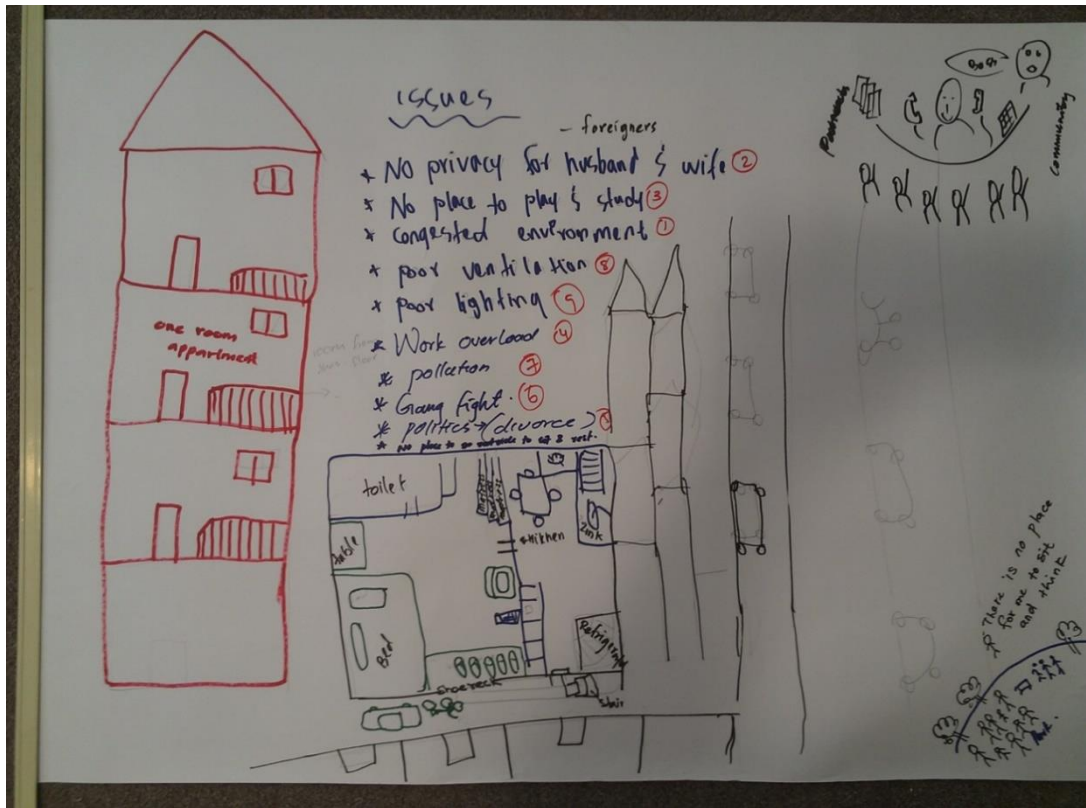 issues
- foreigners
* No privacy for husband & wife ②
* No place to play & study ③
* congested environment ①
* poor ventilation ⑧
* poor lighting ⑨
* Work overload ④
* pollation ⑦
* Gang fight. ⑥
* politics → (divorce)
* No place to go outside to sit & rest.
one room
appartment
toilet
table
Bed
kitchen
Zink
Refrigerator
shoe reck
stair
community
There is no place
for me to sit
and think
Park.